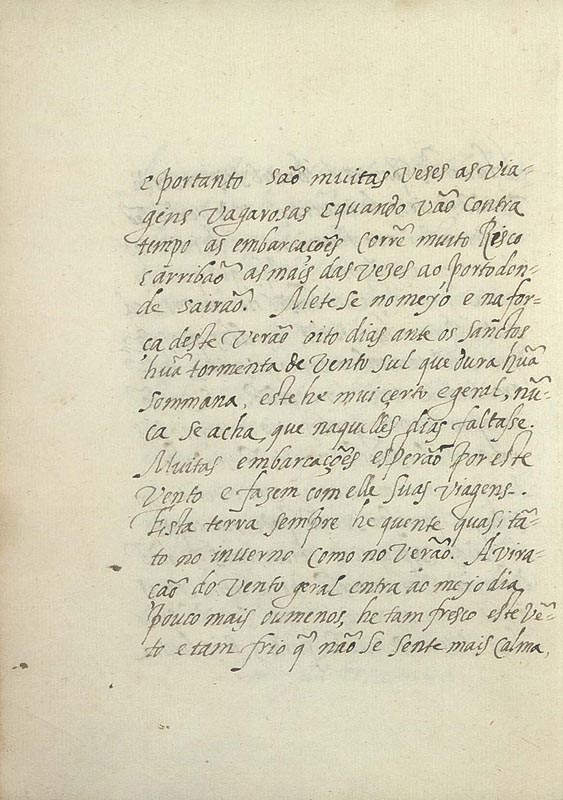 e portanto são muitas veses as via-
gẽns vagarosas e quando vão contra
tempo as embarcacões corrẽ muito Risco
e arribão as mais das vezes ao porto don-
de sairão. Metese no meyo e na for-
ça deste Verão oito dias ante os Sanctos
hũa tormenta de Vento Sul que dura hũa
sommana, este he mui certo e geral, nũ-
ca se acha, que naquelles dias faltase.
Muitas embarcações esperão por este
Vento e fazem com elle suas viagens.
Esta terra sempre he quente quasi tã-
to no inverno como no Verão. A vira-
cão do Vento geral entra ao meyo dia
pouco mais ou menos, he tam fresco este vẽ-
to e tam frio q̃ não se sente mais Calma,